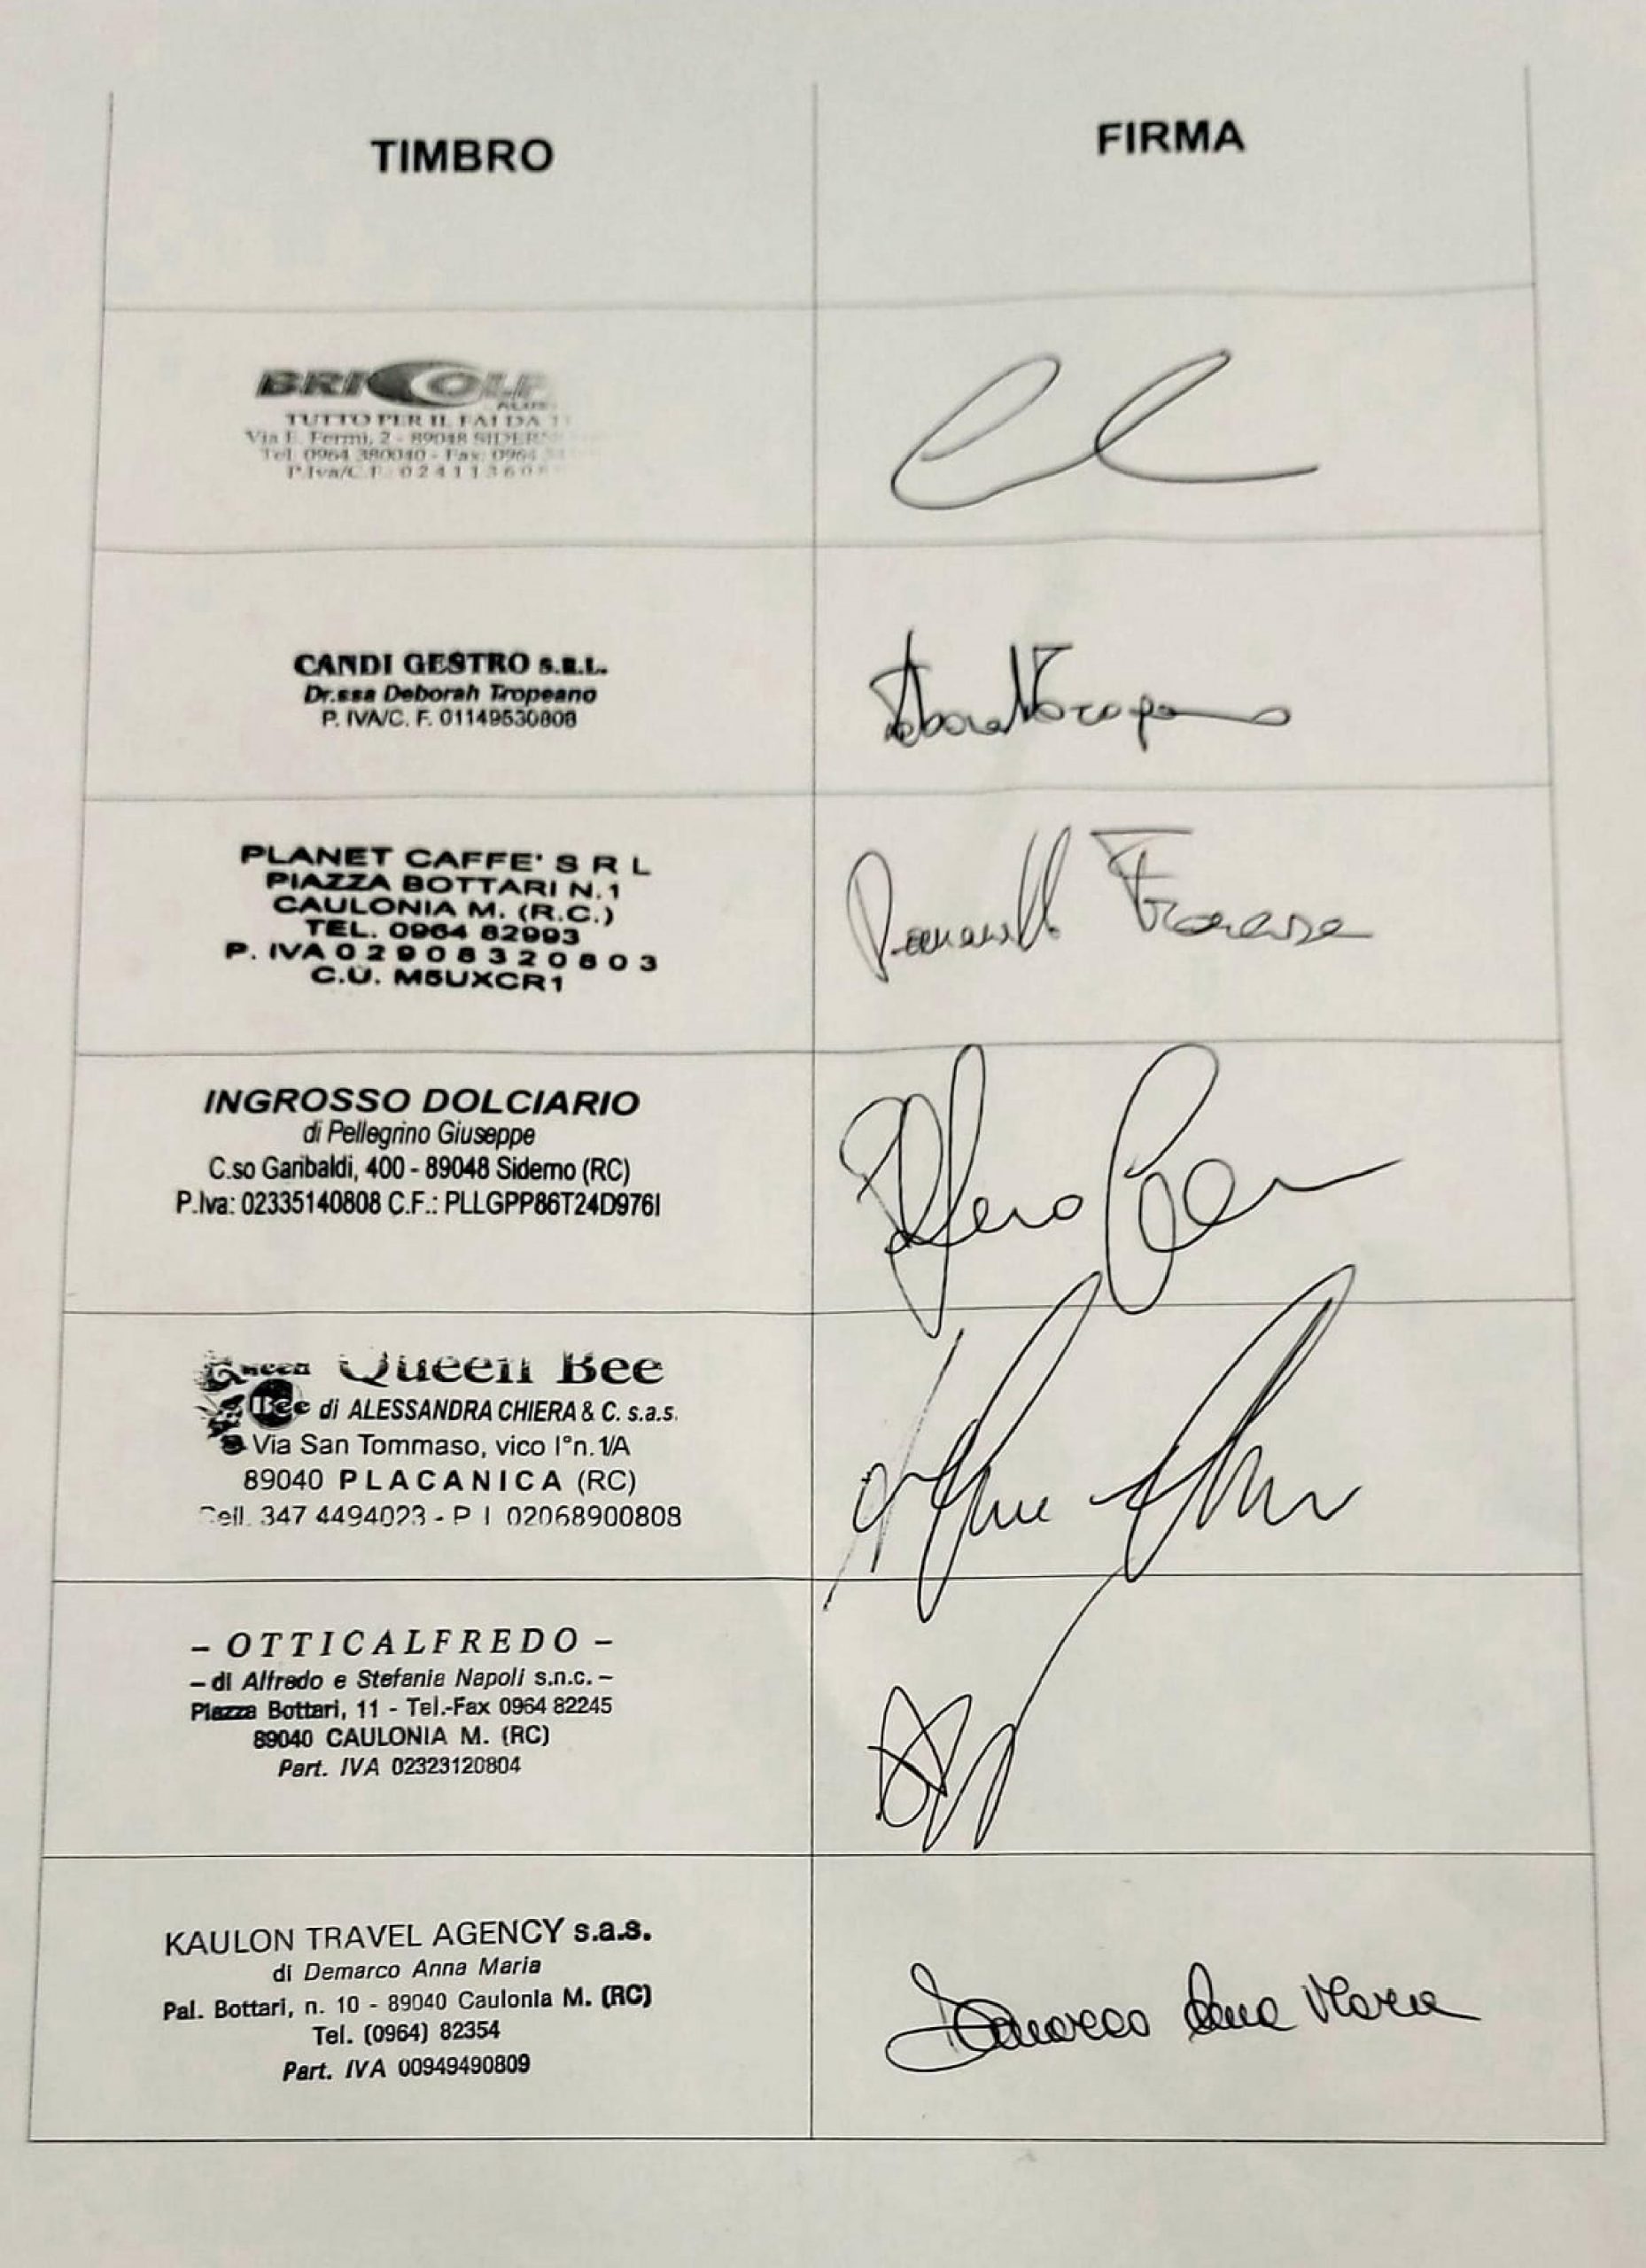 TIMBRO
FIRMA
TUTTO PER IL FAI DA
Via E. Fermi, 2 - 89048 SIDERN
Tel. 0964 380040 - Fax: 0964
P.Iva/C.F. 02411360
CANDI GESTRO S.R.L.
Dr.ssa Deborah Tropeano
P. IVA/C. F. 01149530808
PLANET CAFFE' S R L
PIAZZA BOTTARI N.1
CAULONIA M. (R.C.)
TEL. 0964 82993
P. IVA 02908320803
C.U. M5UXCR1
INGROSSO DOLCIARIO
di Pellegrino Giuseppe
C.so Garibaldi, 400 - 89048 Siderno (RC)
P.Iva: 02335140808 C.F.: PLLGPP86T24D976I
Queen Bee
Queen Bee
di ALESSANDRA CHIERA & C. s.a.s.
Via San Tommaso, vico I° n. 1/A
89040 PLACANICA (RC)
Cell. 347 4494023 - P I 02068900808
- OTTICALFREDO -
- di Alfredo e Stefania Napoli s.n.c. -
Piazza Bottari, 11 - Tel.-Fax 0964 82245
89040 CAULONIA M. (RC)
Part. IVA 02323120804
KAULON TRAVEL AGENCY s.a.s.
di Demarco Anna Maria
Pal. Bottari, n. 10 - 89040 Caulonia M. (RC)
Tel. (0964) 82354
Part. IVA 00949490809
Demarco Anna Maria